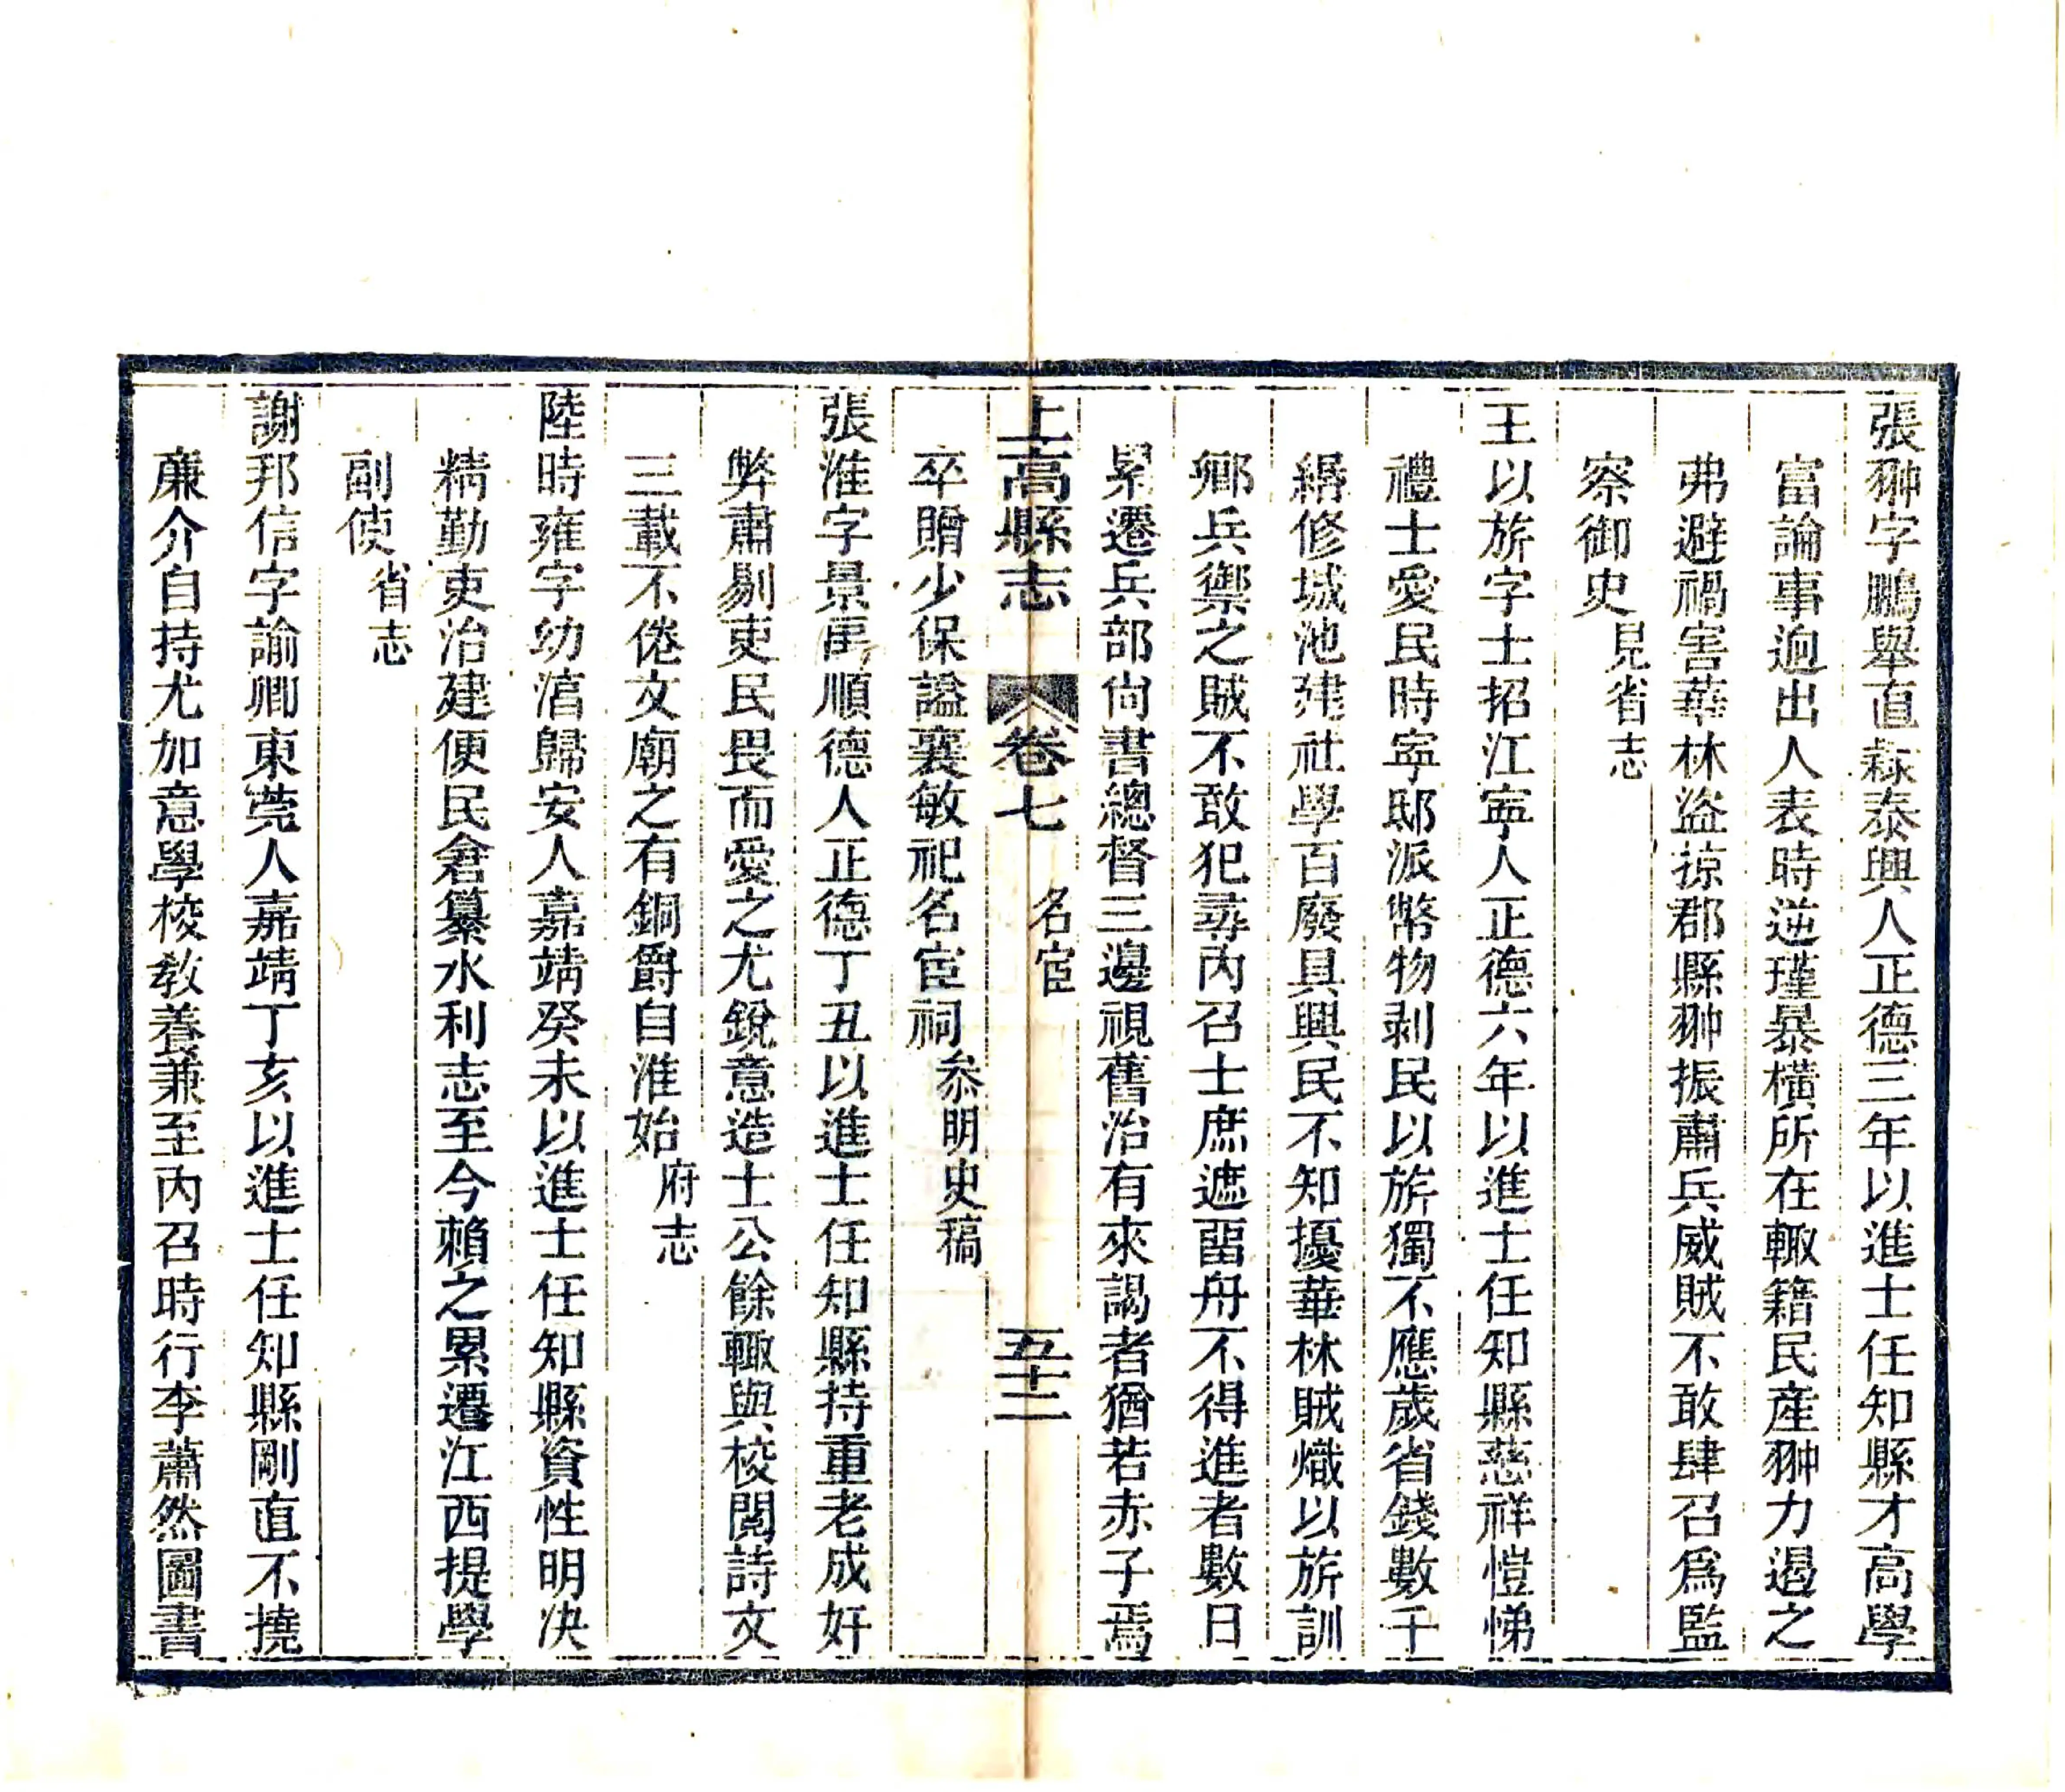 張翀字鵬舉直隸泰興人正德三年以進士任知縣才高學
富論事逈出人表時逆瑾暴橫所在輙籍民產翀力遏之
弗避禍害華林盜掠郡縣翀振肅兵威賊不敢肆召爲監
察御史見省志
王以旂字士招江寧人正德六年以進士任知縣慈祥愷悌
禮士愛民時寧邸派幣物剥民以旂獨不應歲省錢數千
緡修城池建社學百廢具興民不知擾華林賊熾以旂訓
鄉兵禦之賊不敢犯尋內召士庶遮畱舟不得進者數日
累遷兵部尙書總督三邊視舊治有來謁者猶若赤子焉
上高縣志 卷七 名宦 五十二
卒贈少保謚襄敏祀名宦祠叅明史稿
張淮字景禹順德人正德丁丑以進士任知縣持重老成奸
弊肅剔吏民畏而愛之尤銳意造士公餘輙與校閱詩文
三載不倦文廟之有銅爵自淮始府志
陸時雍字幼淯歸安人嘉靖癸未以進士任知縣資性明决
精勤吏治建便民倉纂水利志至今賴之累遷江西提學
副使省志
謝邦信字諭卿東莞人嘉靖丁亥以進士任知縣剛直不撓
廉介自持尤加意學校敎養兼至內召時行李蕭然圖書